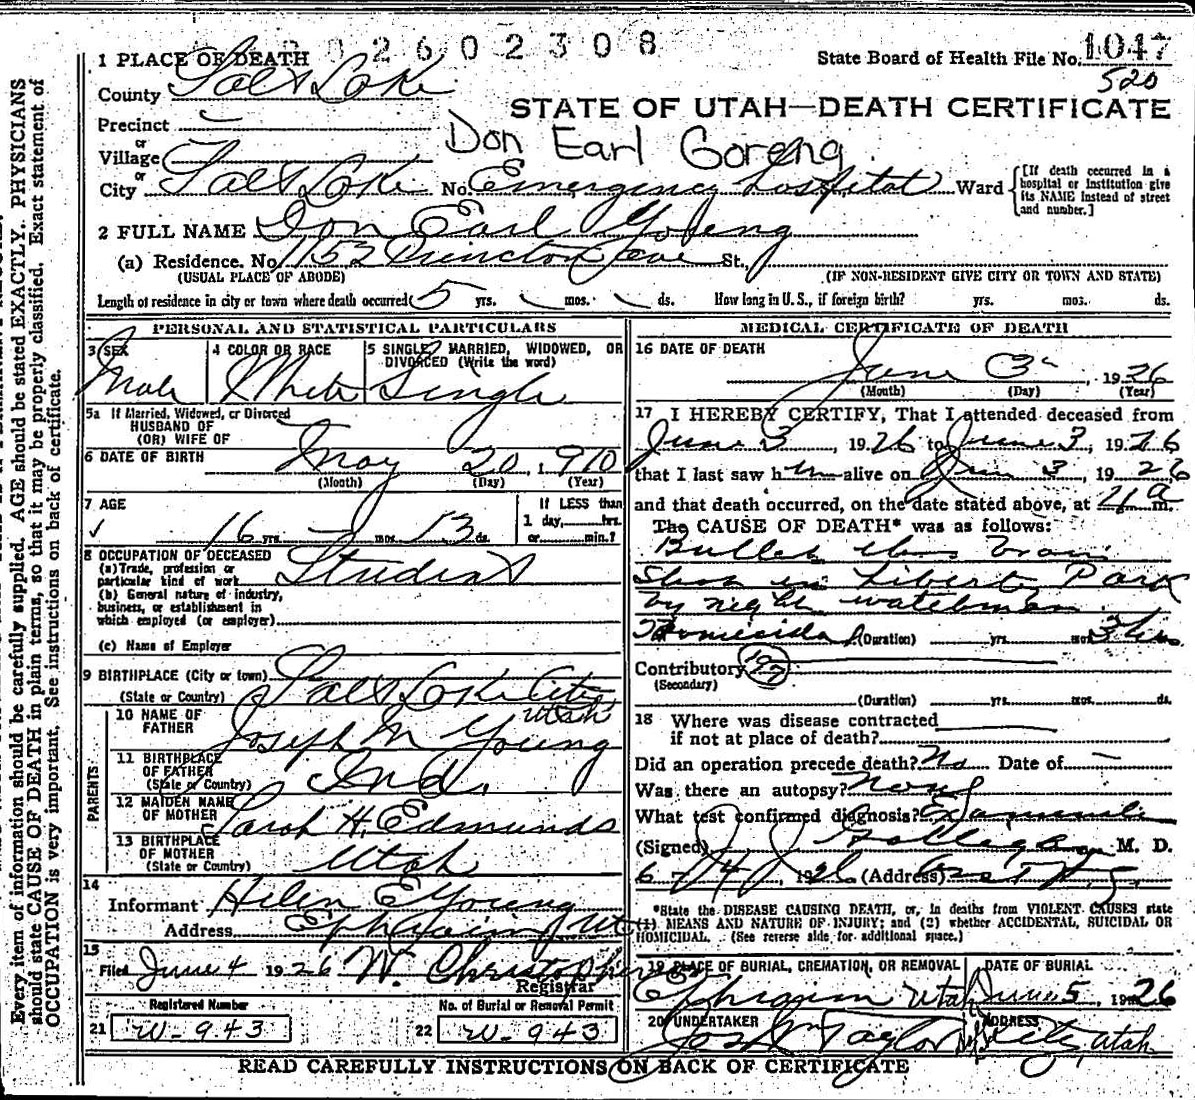 02602308
1 PLACE OF DEATH
State Board of Health File No. 1047
520
County Salt Lake
STATE OF UTAH—DEATH CERTIFICATE
Precinct
Don Earl Goreng
or
Village
or
City Salt Lake No. Emergency Hospital Ward
[If death occurred in a hospital or institution give its NAME instead of street and number.]
2 FULL NAME Don Earl Yoreng
(a) Residence. No. 1152 Princton Ave St.
(USUAL PLACE OF ABODE) (IF NON-RESIDENT GIVE CITY OR TOWN AND STATE)
Length of residence in city or town where death occurred 5 yrs. mos. ds. How long in U. S., if foreign birth? yrs. mos. ds.
PERSONAL AND STATISTICAL PARTICULARS
3 SEX Male
4 COLOR OR RACE White
5 SINGLE, MARRIED, WIDOWED, OR DIVORCED (Write the word) Single
5a If Married, Widowed, or Divorced
HUSBAND OF
(OR) WIFE OF
6 DATE OF BIRTH May 20, 1910
(Month) (Day) (Year)
7 AGE 16 yrs. mos. 13 ds.
If LESS than 1 day, hrs. or min.?
8 OCCUPATION OF DECEASED
(a) Trade, profession or particular kind of work Student
(b) General nature of industry, business, or establishment in which employed (or employer)
(c) Name of Employer
9 BIRTHPLACE (City or town) Salt Lake City
(State or Country) Utah
PARENTS
10 NAME OF FATHER Joseph M Young
11 BIRTHPLACE OF FATHER (State or Country) Ind.
12 MAIDEN NAME OF MOTHER Sarah H. Edmunds
13 BIRTHPLACE OF MOTHER (State or Country) Utah
14
Informant Helen E Young
Address Ephraim Ut
15
Filed June 4 1926 W. Christopherson
Registrar
Registered Number
21 W-943
No. of Burial or Removal Permit
22 W-943
MEDICAL CERTIFICATE OF DEATH
16 DATE OF DEATH
June 3, 1926
(Month) (Day) (Year)
17 I HEREBY CERTIFY, That I attended deceased from
June 3, 1926 to June 3, 1926
that I last saw him alive on June 3, 1926
and that death occurred, on the date stated above, at 4 a m.
The CAUSE OF DEATH* was as follows:
Bullet thru brain
Shot in Liberty Park
by night watchman
Homicidal (Duration) yrs. mos. 3 hrs
Contributory 197
(Secondary)
(Duration) yrs. mos. ds.
18 Where was disease contracted
if not at place of death?
Did an operation precede death? No Date of
Was there an autopsy? None
What test confirmed diagnosis?
(Signed) J. J. Galligan M. D.
6/4, 1926 (Address)
*State the DISEASE CAUSING DEATH, or, in deaths from VIOLENT CAUSES state
(1) MEANS AND NATURE OF INJURY; and (2) whether ACCIDENTAL, SUICIDAL OR
HOMICIDAL. (See reverse side for additional space.)
19 PLACE OF BURIAL, CREMATION, OR REMOVAL Ephraim Utah
DATE OF BURIAL June 5, 1926
20 UNDERTAKER Jos Wm Taylor
ADDRESS City, Utah
READ CAREFULLY INSTRUCTIONS ON BACK OF CERTIFICATE
Every item of information should be carefully supplied. AGE should be stated EXACTLY. PHYSICIANS
should state CAUSE OF DEATH in plain terms, so that it may be properly classified. Exact statement of
OCCUPATION is very important. See instructions on back of certificate.